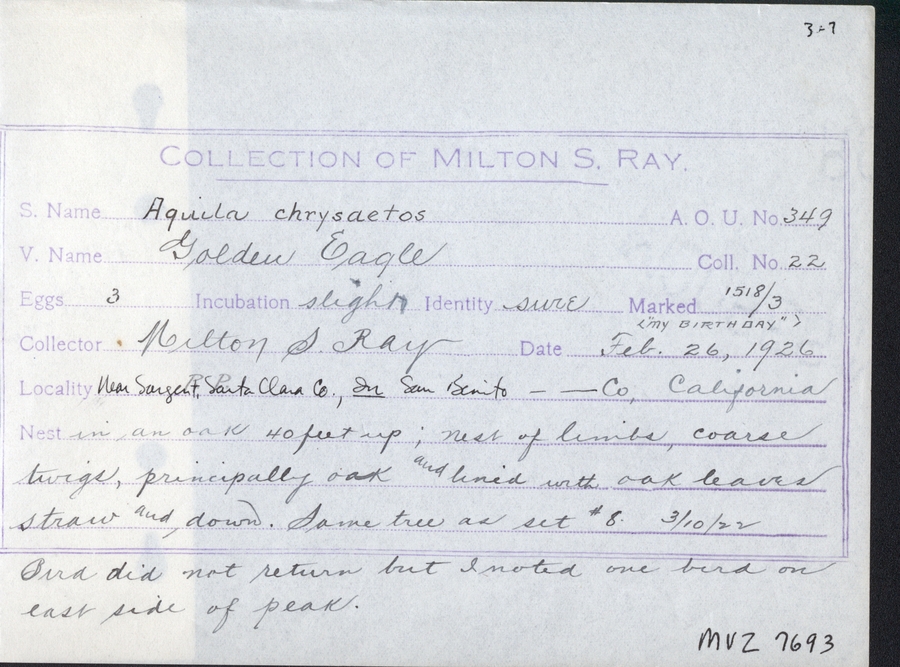 3-7
COLLECTION OF MILTON S. RAY.
S. Name Aquila chrysaetos A. O. U. No. 349
V. Name Golden Eagle Coll. No. 22
Eggs 3 Incubation slight Identity sure Marked 1518/3
Collector Milton S. Ray Date Feb. 26, 1926 <"MY BIRTHDAY">
Locality Near Sargent, Santa Clara Co., In San Benito — — Co, California
Nest in an oak 40 feet up; nest of limbs, coarse
twigs, principally oak and lined with oak leaves
straw and down. Same tree as set #8. 3/10/22
Bird did not return but I noted one bird on
east side of peak.
MVZ 7693